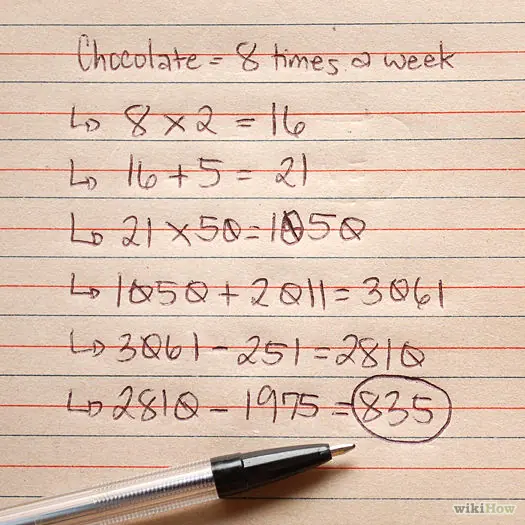 Chocolate = 8 times a week
↳ 8 × 2 = 16
↳ 16 + 5 = 21
↳ 21 × 50 = 1050
↳ 1050 + 2011 = 3061
↳ 3061 - 251 = 2810
↳ 2810 - 1975 = 835
wikiHow